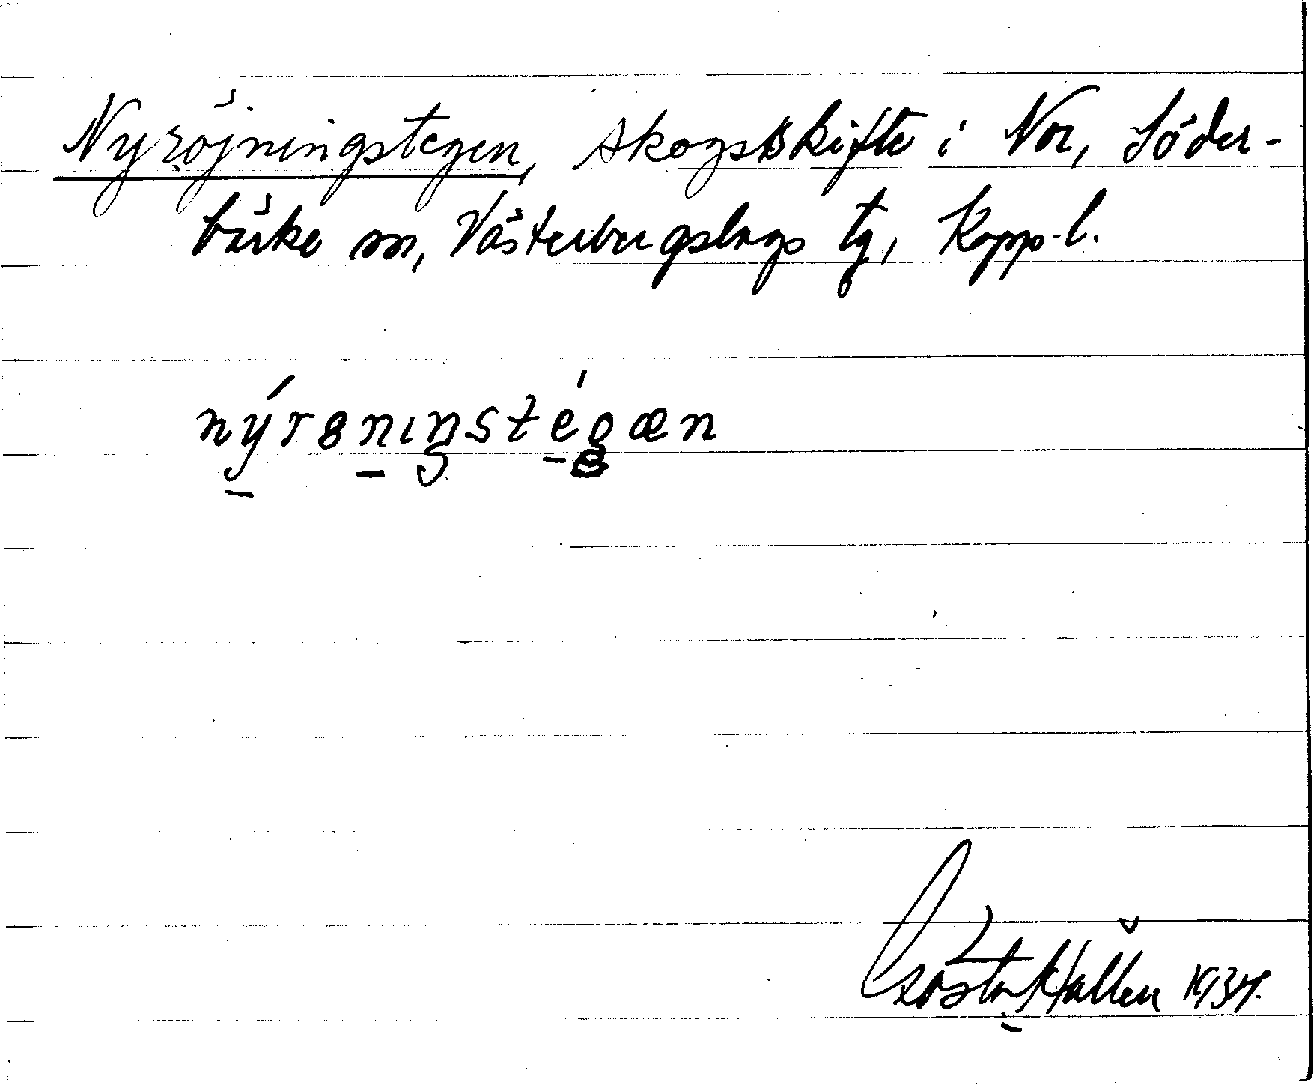 Nyröjningstegen, skogsskifte i Nor, Söder-
bärke sn, Västerbergslags tg, Kopp. l.
nýrɵnıŋstégæn
Gösta Hallén 1934.